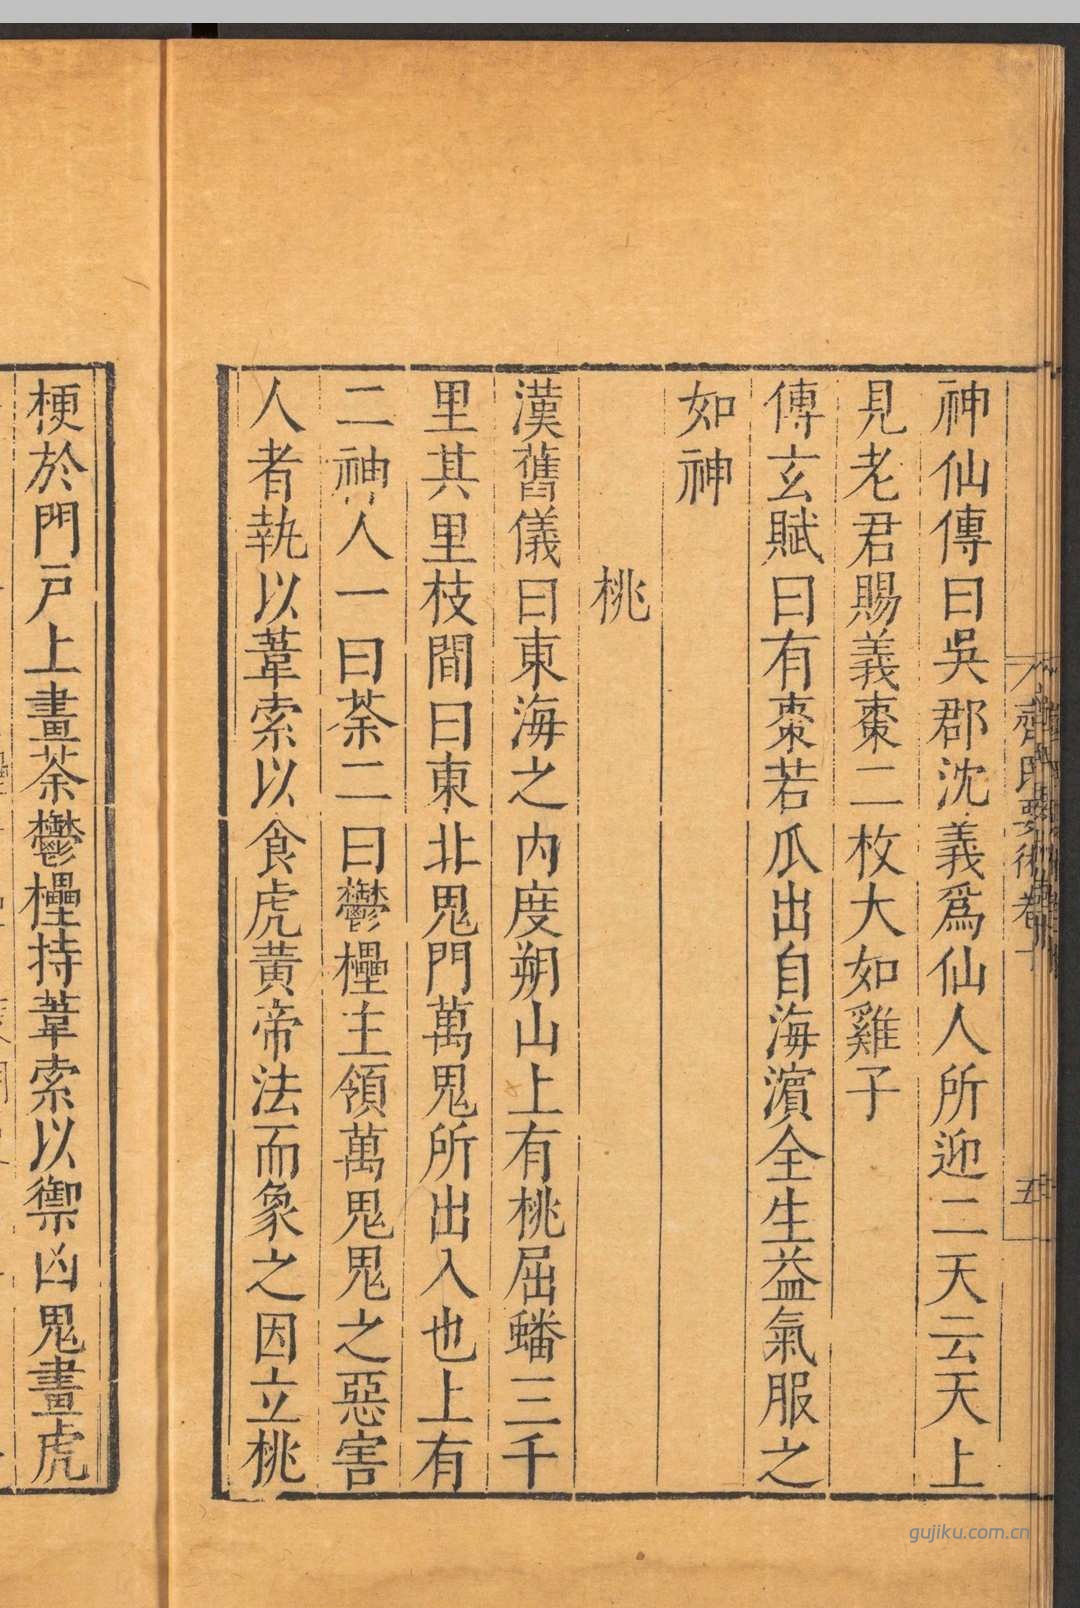 齊民要術卷十
五
神仙傳曰吳郡沈羲爲仙人所迎二天云天上
見老君賜義棗二枚大如雞子
傅玄賦曰有棗若瓜出自海濵全生益氣服之
如神
桃
漢舊儀曰東海之內度朔山上有桃屈蟠三千
里其里枝間曰東北鬼門萬鬼所出入也上有
二神人一曰荼二曰鬱櫑主領萬鬼鬼之惡害
人者執以葦索以食虎黃帝法而象之因立桃
梗於門戸上畫荼鬱櫑持葦索以禦凶鬼畫虎
gujiku.com.cn